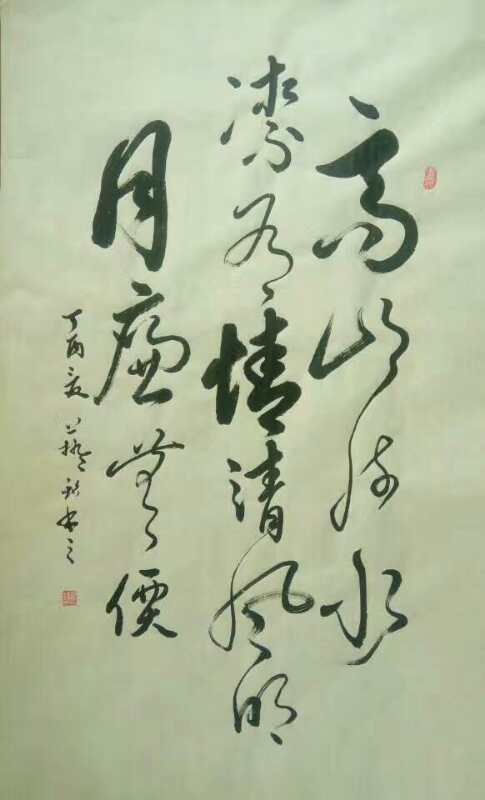 高山流水
潔有情清風明
月廉無價
丁酉夏 藝 書之